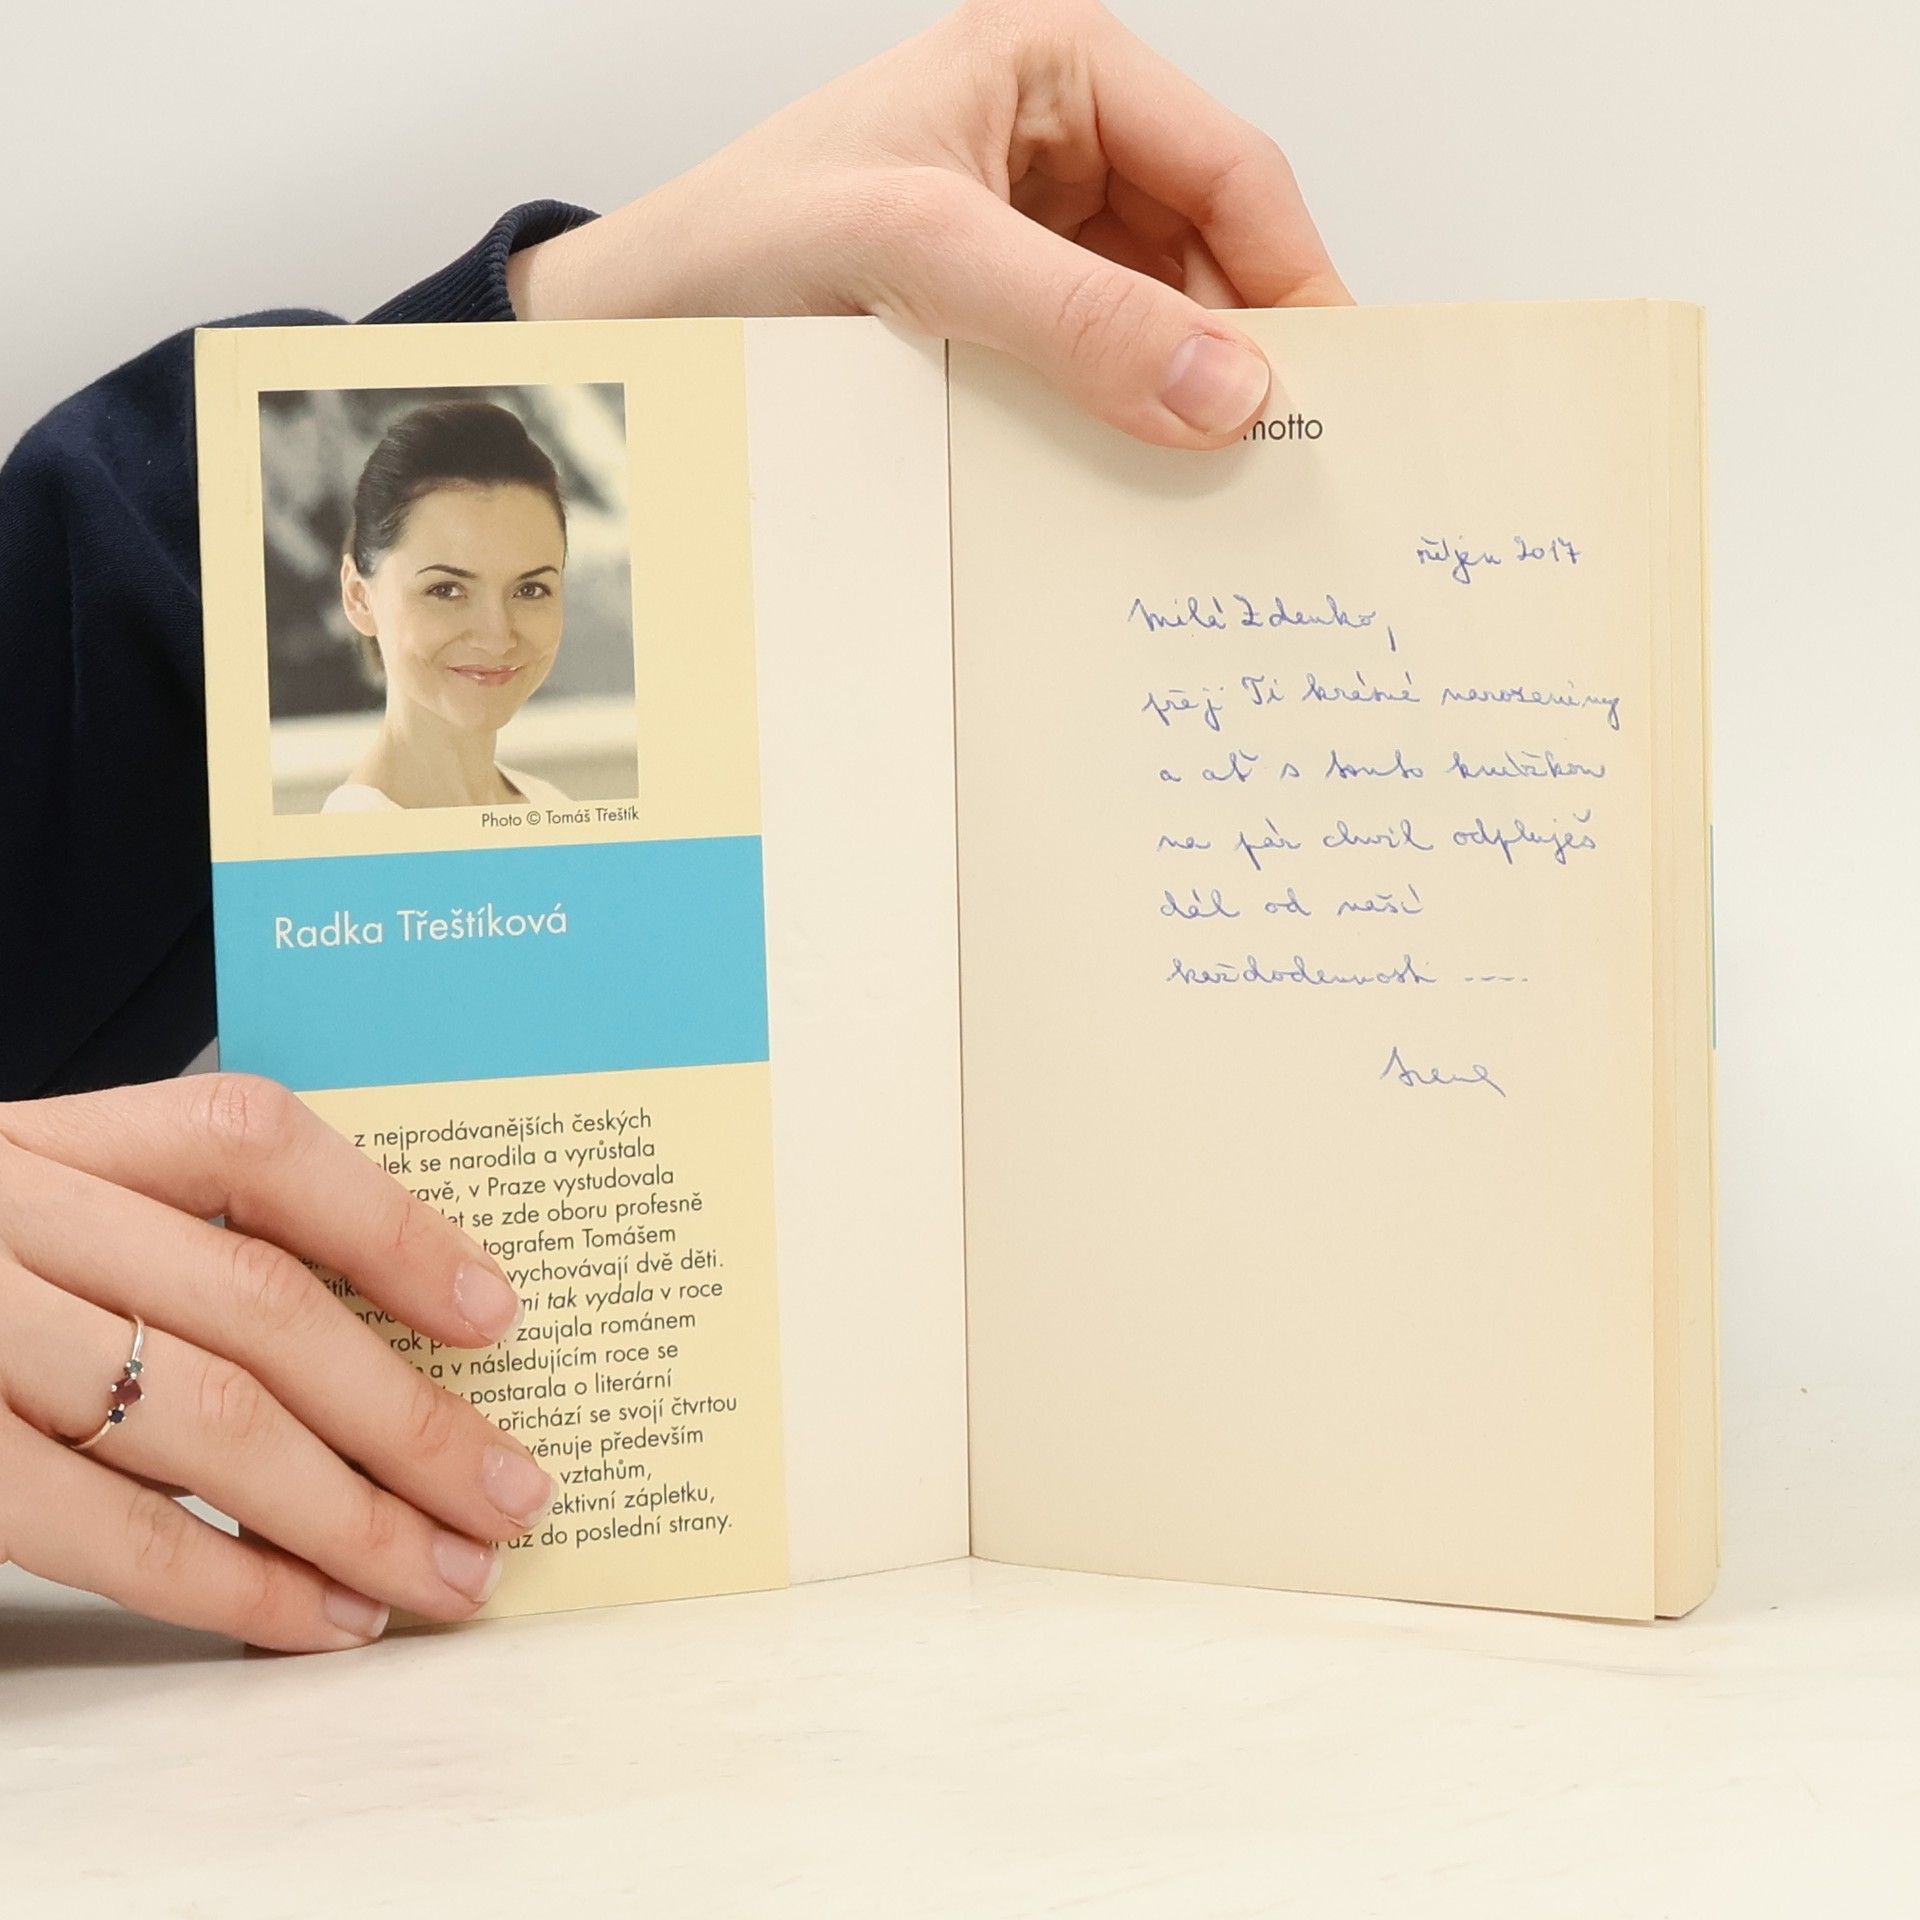 Photo © Tomáš Třeštík
Radka Třeštíková
z nejprodávanějších českých
se narodila a vyrůstala
v Praze vystudovala
se zde oboru profesně
Tomášem
vychovávají dvě děti.
tak vydala v roce
rok zaujala románem
a v následujícím roce se
postarala o literární
přichází se svojí čtvrtou
věnuje především
vztahům,
zápletku,
až do poslední strany.
motto
říjen 2017
Milá Zdenko,
přeji Ti krásné narozeniny
a ať s touto knížkou
na pár chvil odpluješ
dál od naší
každodennosti -----
Irena